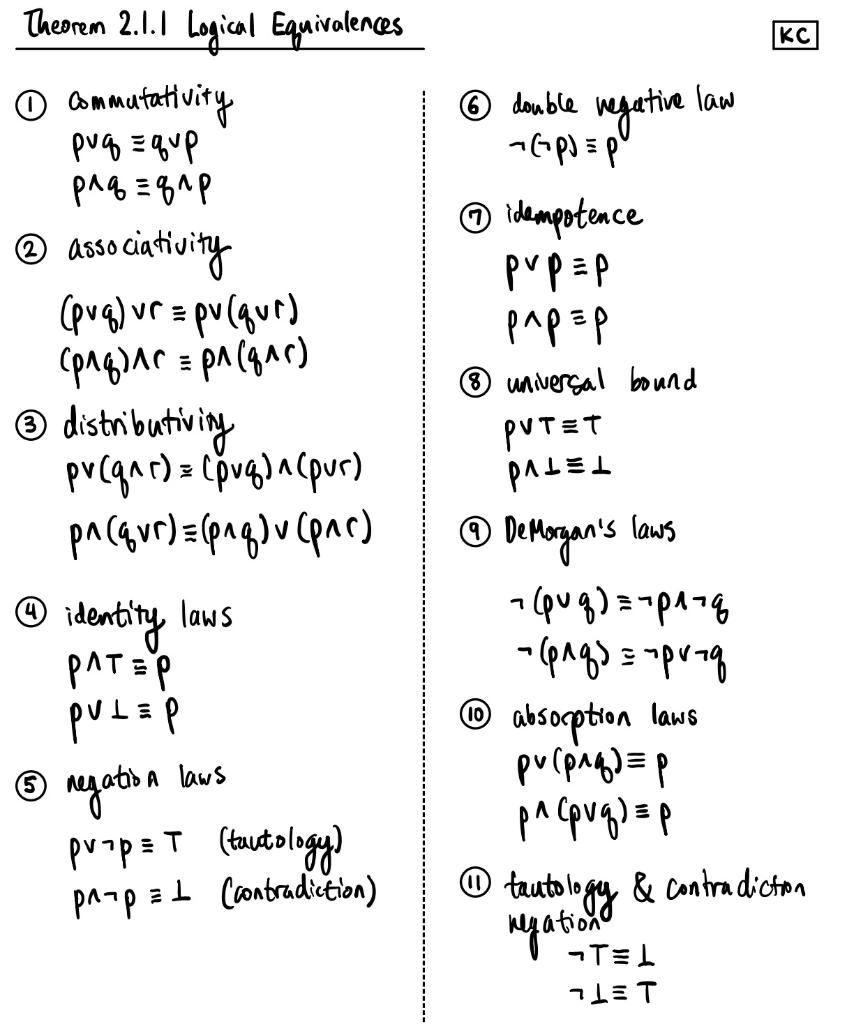 Theorem 2.1.1 Logical Equivalences
KC
① commutativity
p∨q ≡ q∨p
p∧q ≡ q∧p
② associativity
(p∨q)∨r ≡ p∨(q∨r)
(p∧q)∧r ≡ p∧(q∧r)
③ distributivity
p∨(q∧r) ≡ (p∨q)∧(p∨r)
p∧(q∨r) ≡ (p∧q)∨(p∧r)
④ identity laws
p∧T ≡ p
p∨⊥ ≡ p
⑤ negation laws
p∨¬p ≡ T (tautology)
p∧¬p ≡ ⊥ (contradiction)
⑥ double negative law
¬(¬p) ≡ p
⑦ idempotence
p∨p ≡ p
p∧p ≡ p
⑧ universal bound
p∨T ≡ T
p∧⊥ ≡ ⊥
⑨ DeMorgan's laws
¬(p∨q) ≡ ¬p∧¬q
¬(p∧q) ≡ ¬p∨¬q
⑩ absorption laws
p∨(p∧q) ≡ p
p∧(p∨q) ≡ p
⑪ tautology & contradiction
negation
¬T ≡ ⊥
¬⊥ ≡ T